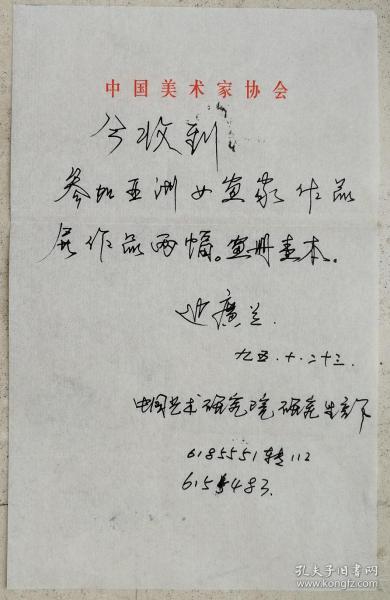 中国美术家协会
兮收到
参加亚洲女画家作品
展作品两幅。画册壹本.
广兰.
九五.十.二十三.
中国艺术研究院研究生部
6185551转112
孔夫子旧书网
www.kongfz.com